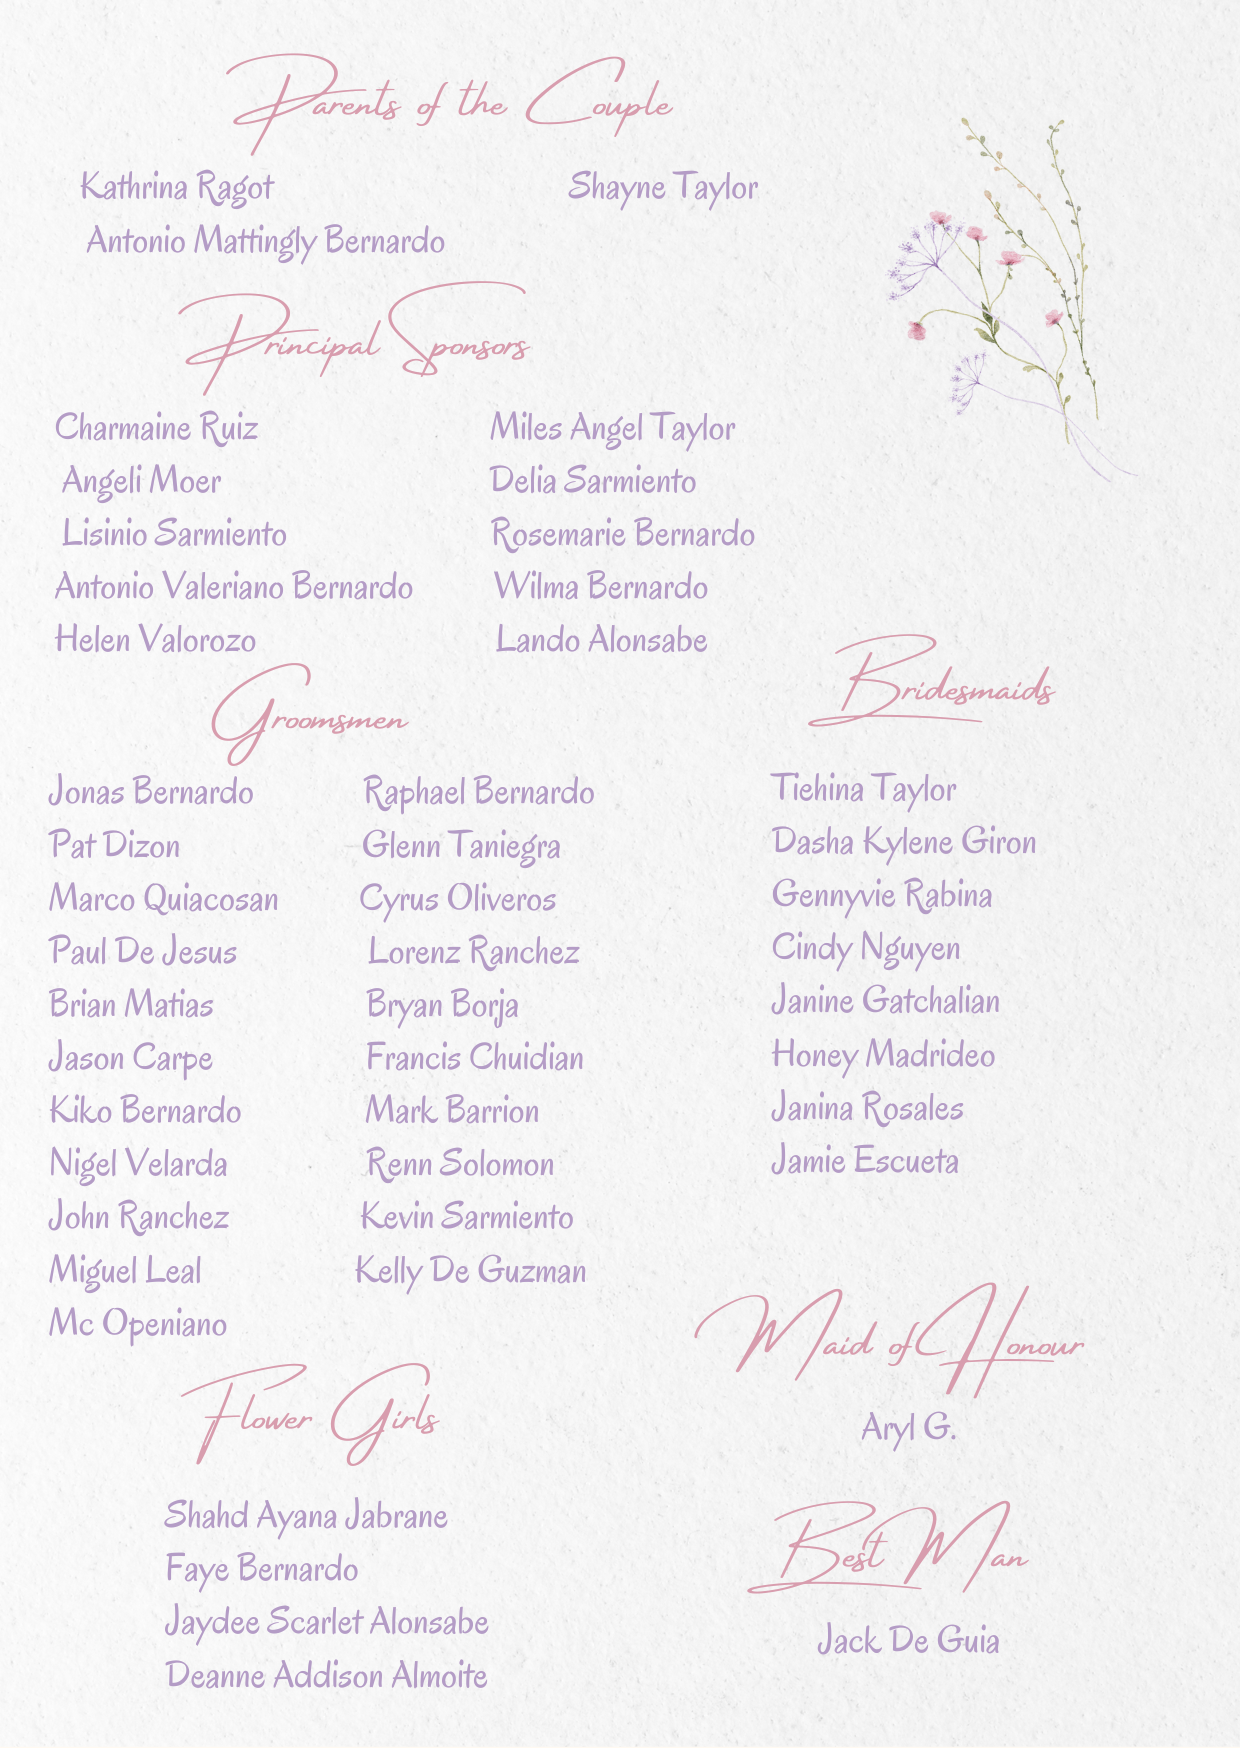 Parents of the Couple
Kathrina Ragot
Shayne Taylor
Antonio Mattingly Bernardo
Principal Sponsors
Charmaine Ruiz
Angeli Moer
Lisinio Sarmiento
Antonio Valeriano Bernardo
Helen Valorozo
Miles Angel Taylor
Delia Sarmiento
Rosemarie Bernardo
Wilma Bernardo
Lando Alonsabe
Groomsmen
Jonas Bernardo
Pat Dizon
Marco Quiacosan
Paul De Jesus
Brian Matias
Jason Carpe
Kiko Bernardo
Nigel Velarda
John Ranchez
Miguel Leal
Mc Openiano
Raphael Bernardo
Glenn Taniegra
Cyrus Oliveros
Lorenz Ranchez
Bryan Borja
Francis Chuidian
Mark Barrion
Renn Solomon
Kevin Sarmiento
Kelly De Guzman
Bridesmaids
Tiehina Taylor
Dasha Kylene Giron
Gennyvie Rabina
Cindy Nguyen
Janine Gatchalian
Honey Madrideo
Janina Rosales
Jamie Escueta
Maid of Honour
Aryl G.
Flower Girls
Shahd Ayana Jabrane
Faye Bernardo
Jaydee Scarlet Alonsabe
Deanne Addison Almoite
Best Man
Jack De Guia